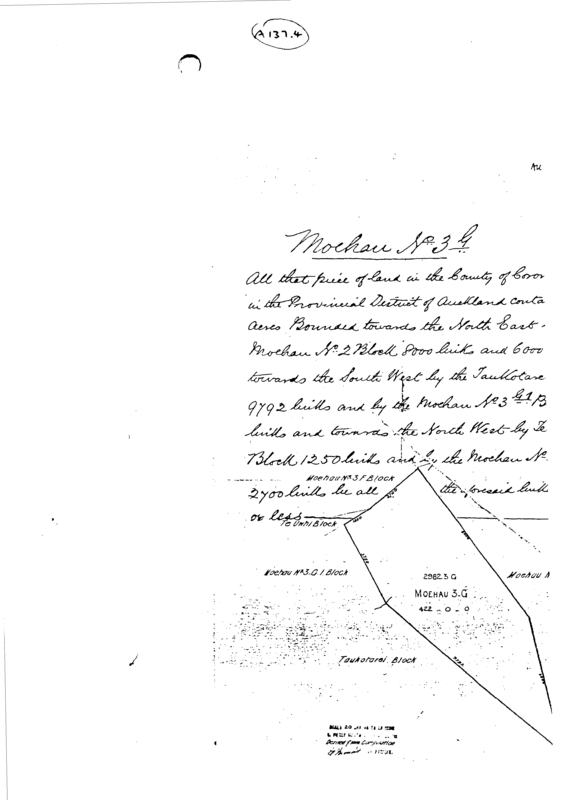 A 137.4
AU
Moehau No. 3 G
All that piece of land in the County of Coro
in the Provincial District of Auckland conta
acres Bounded towards the North East
Moehau No. 2 Block 8000 links and 6000
towards the South West by the Taukotare
9792 links and by the Moehau No. 3 G1 B
links and towards the North West by Te
Block 1250 links and by the Moehau No.
2700 links be all the aforesaid link
or less
Moehau No 3.F Block
Te Unhi Block
Moehau No 3.G.1 Block
2982.3 G
Moehau
MOEHAU 3.G
422 - 0 - 0
Taukotarei Block